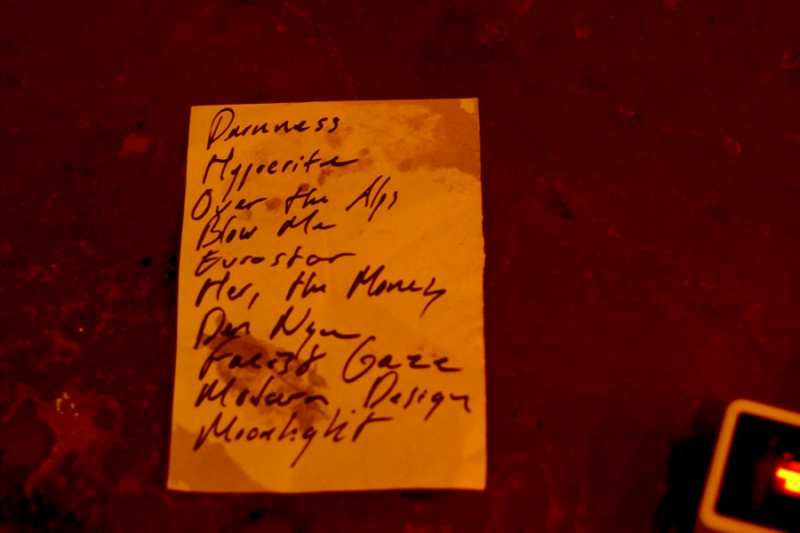 Darkness
Hypocrite
Over the Alps
Blow Me
Eurostar
Her, the Money
Den Nye
Faces & Gaze
Modern Design
Moonlight